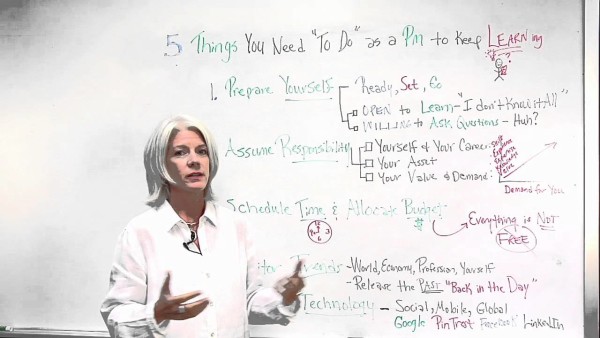 5 Things You Need "To Do" as a Pm to Keep LEARNing
?
1. Prepare Yourself - Ready, Set, Go
OPEN to Learn - "I don't Know it All"
WILLING to Ask Questions - Huh?
Assume Responsibility
Yourself & Your Career
Your Asset
Your Value & Demand
Demand for You
Schedule Time & Allocate Budget
$
Everything is NOT
FREE
12
3
6
Trends - World, Economy, Profession, Yourself
- Release the PAST "Back in the Day"
Technology - Social, Mobile, Global
Google PinTrest Facebook LinkedIn